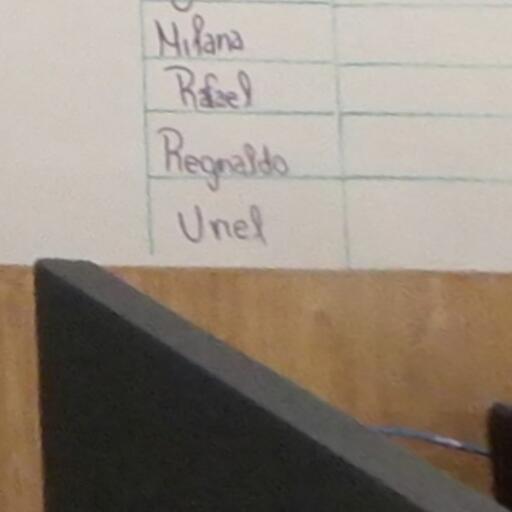 Milana
Rafael
Regnaldo
Unel